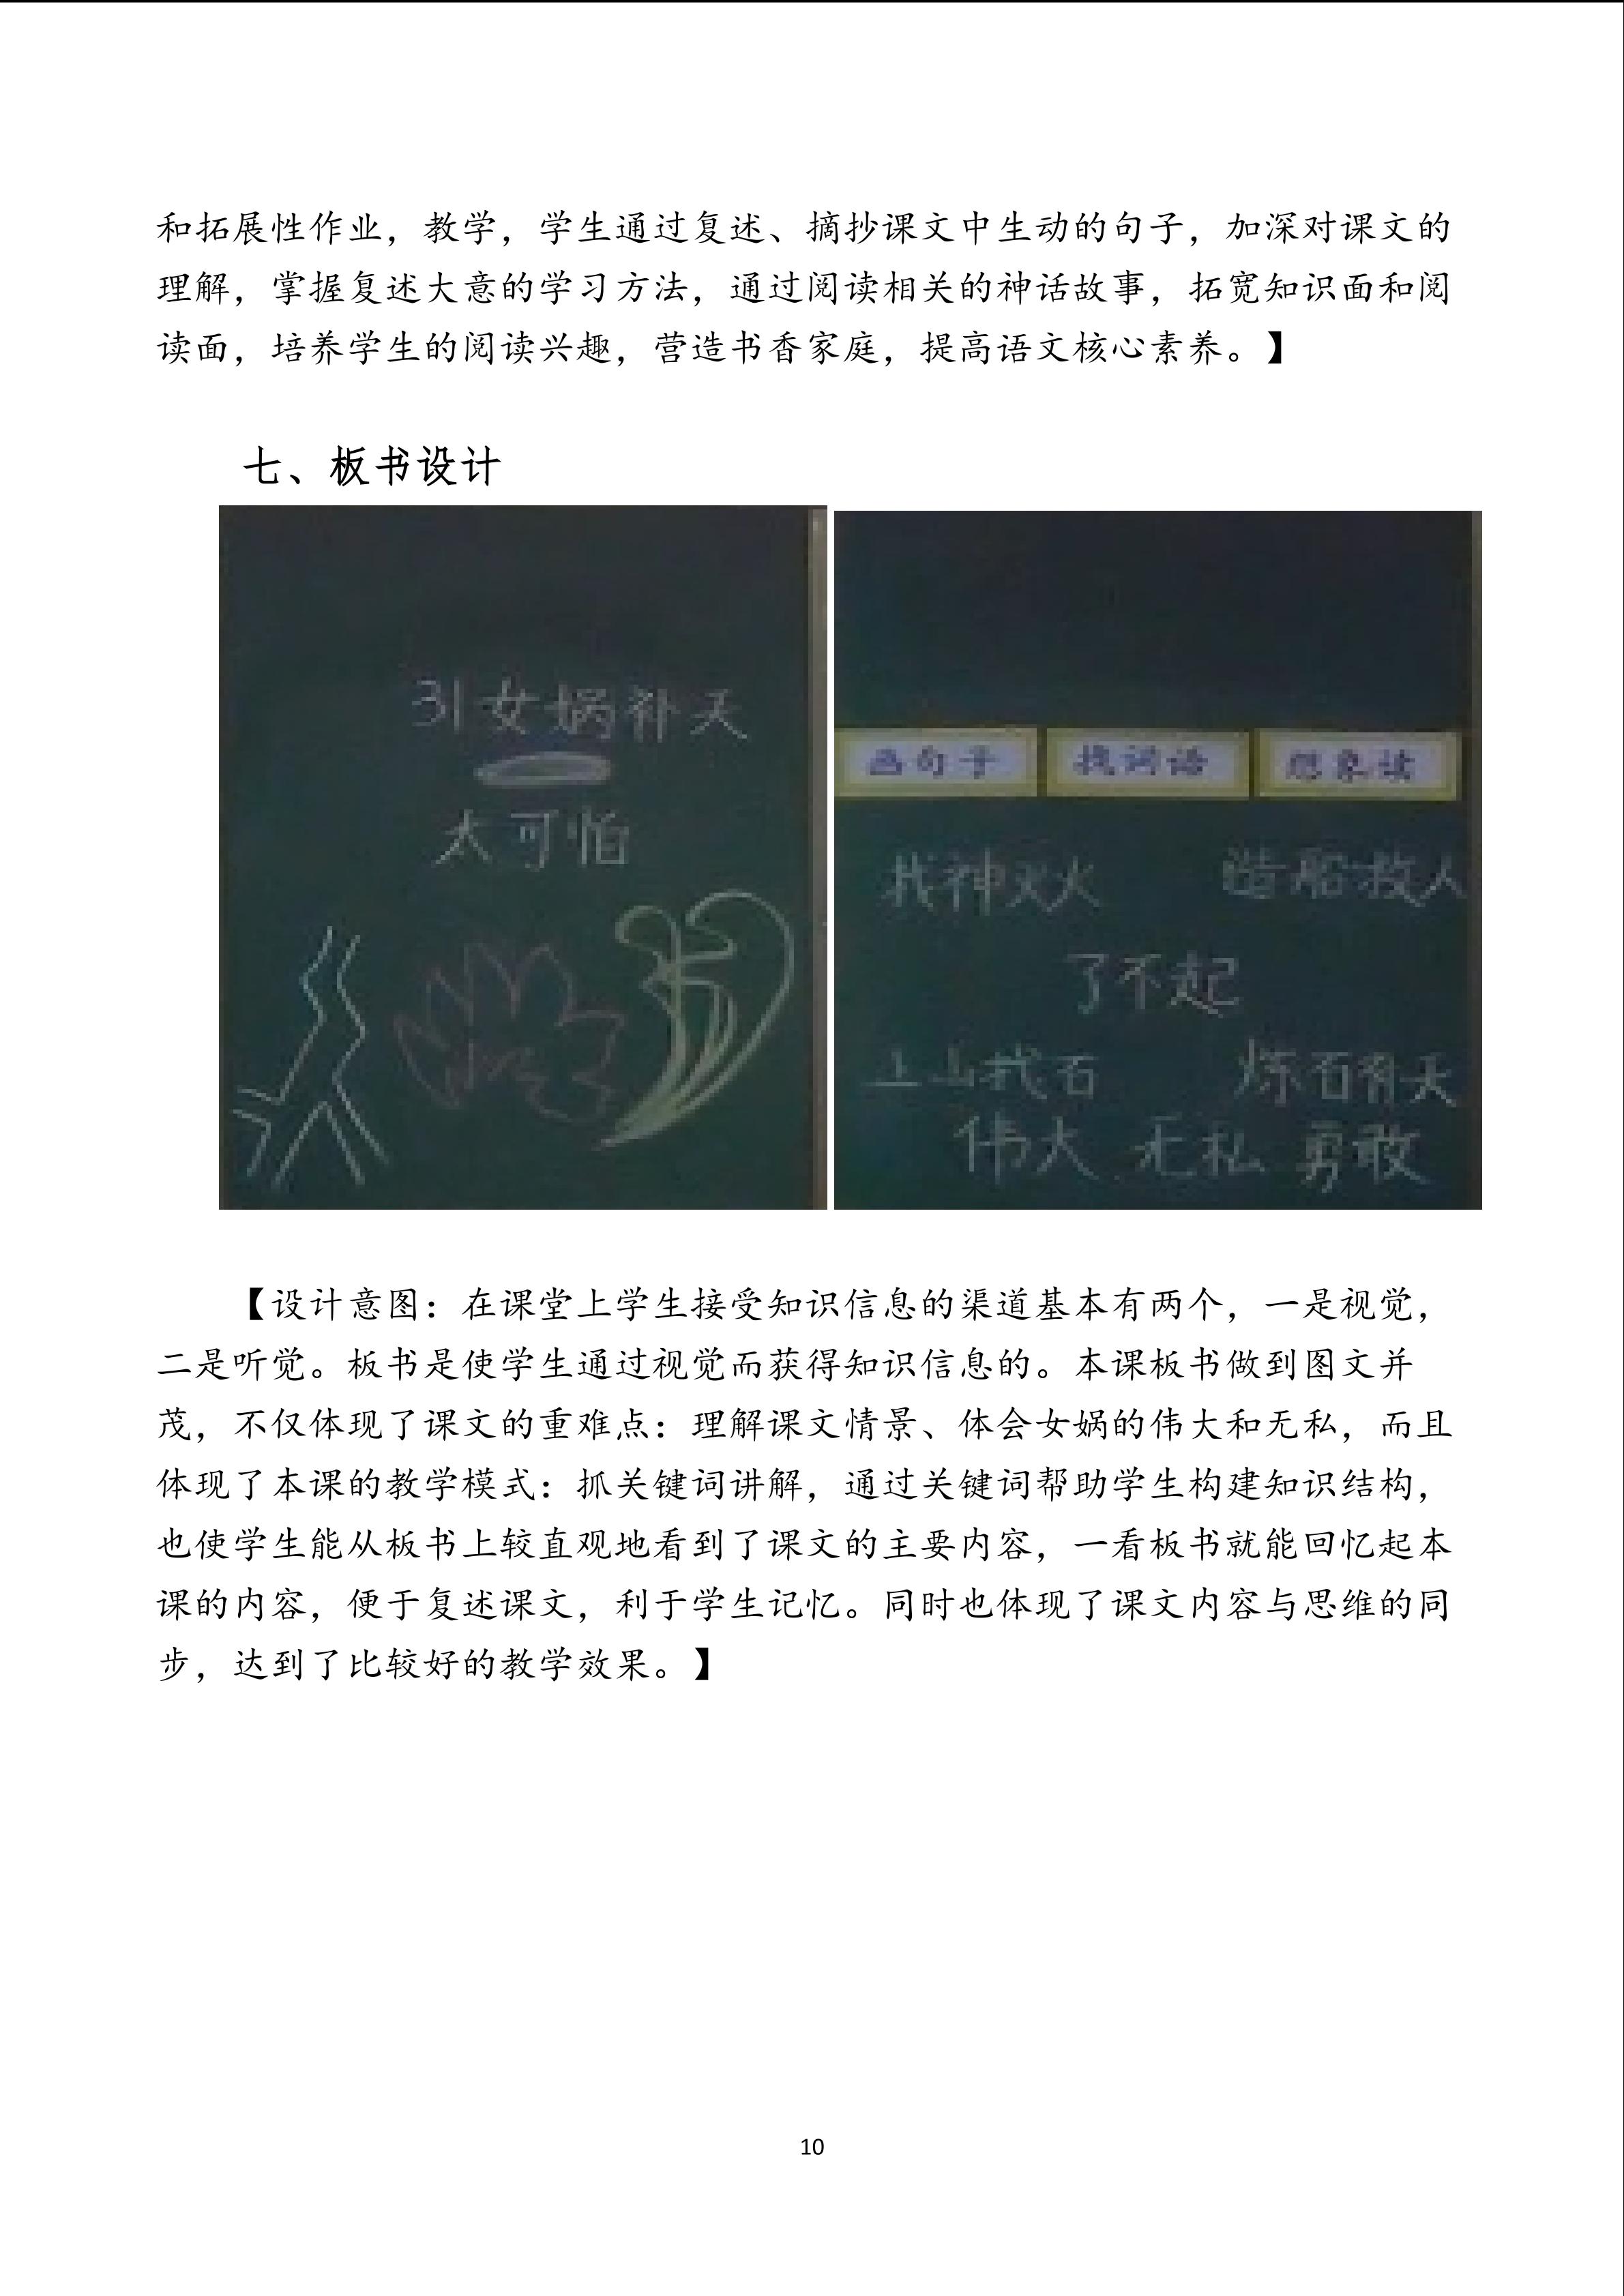 和拓展性作业，教学，学生通过复述、摘抄课文中生动的句子，加深对课文的
理解，掌握复述大意的学习方法，通过阅读相关的神话故事，拓宽知识面和阅
读面，培养学生的阅读兴趣，营造书香家庭，提高语文核心素养。】
七、板书设计
31女娲补天
太可怕
画句子 找词语 想象读
找神灭火 造船救人
了不起
上山找石 炼石补天
伟大 无私 勇敢
【设计意图：在课堂上学生接受知识信息的渠道基本有两个，一是视觉，
二是听觉。板书是使学生通过视觉而获得知识信息的。本课板书做到图文并
茂，不仅体现了课文的重难点：理解课文情景、体会女娲的伟大和无私，而且
体现了本课的教学模式：抓关键词讲解，通过关键词帮助学生构建知识结构，
也使学生能从板书上较直观地看到了课文的主要内容，一看板书就能回忆起本
课的内容，便于复述课文，利于学生记忆。同时也体现了课文内容与思维的同
步，达到了比较好的教学效果。】
10